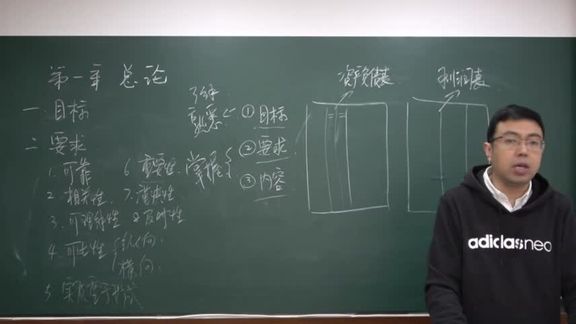 第一章 总论
一 目标
二 要求
1. 可靠
2. 相关性
3. 可理解性
4. 可比性 { 纵向
横向
5. 实质重于形式
6 重要性
7. 谨慎性
8 及时性
了解
熟悉
掌握
① 目标
② 要求
③ 内容
资产负债表
利润表
adidas neo